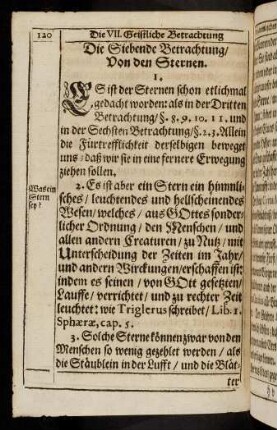 120 Die VII. Geistliche Betrachtung
Die Siebende Betrachtung/
Von den Sternen.
1.
ES ist der Sternen schon etlichmal
gedacht worden: als in der Dritten
Betrachtung/ §. 8. 9. 10. 11. und
in der Sechsten Betrachtung/ §. 2. 3. Allein
die Fürtrefflichkeit derselbigen beweget
uns/ daß wir sie in eine fernere Erwegung
ziehen sollen.
Was ein
Stern
sey?
2. Es ist aber ein Stern ein himmli-
sches/ leuchtendes und hellscheinendes
Wesen/ welches/ aus GOttes sonder-
licher Ordnung/ den Menschen/ und
allen andern Creaturen/ zu Nutz/ mit
Unterscheidung der Zeiten im Jahr/
und andern Wirckungen/ erschaffen ist:
indem es seinen/ von GOtt gesetzten/
Lauffe/ verrichtet/ und zu rechter Zeit
leuchtet: wie Triglerus schreibet/ Lib. 1.
Sphæræ, cap. 5.
3. Solche Sterne können zwar von den
Menschen so wenig gezehlet werden/ als
die Stäublein in der Lufft/ und die Blät-
ter